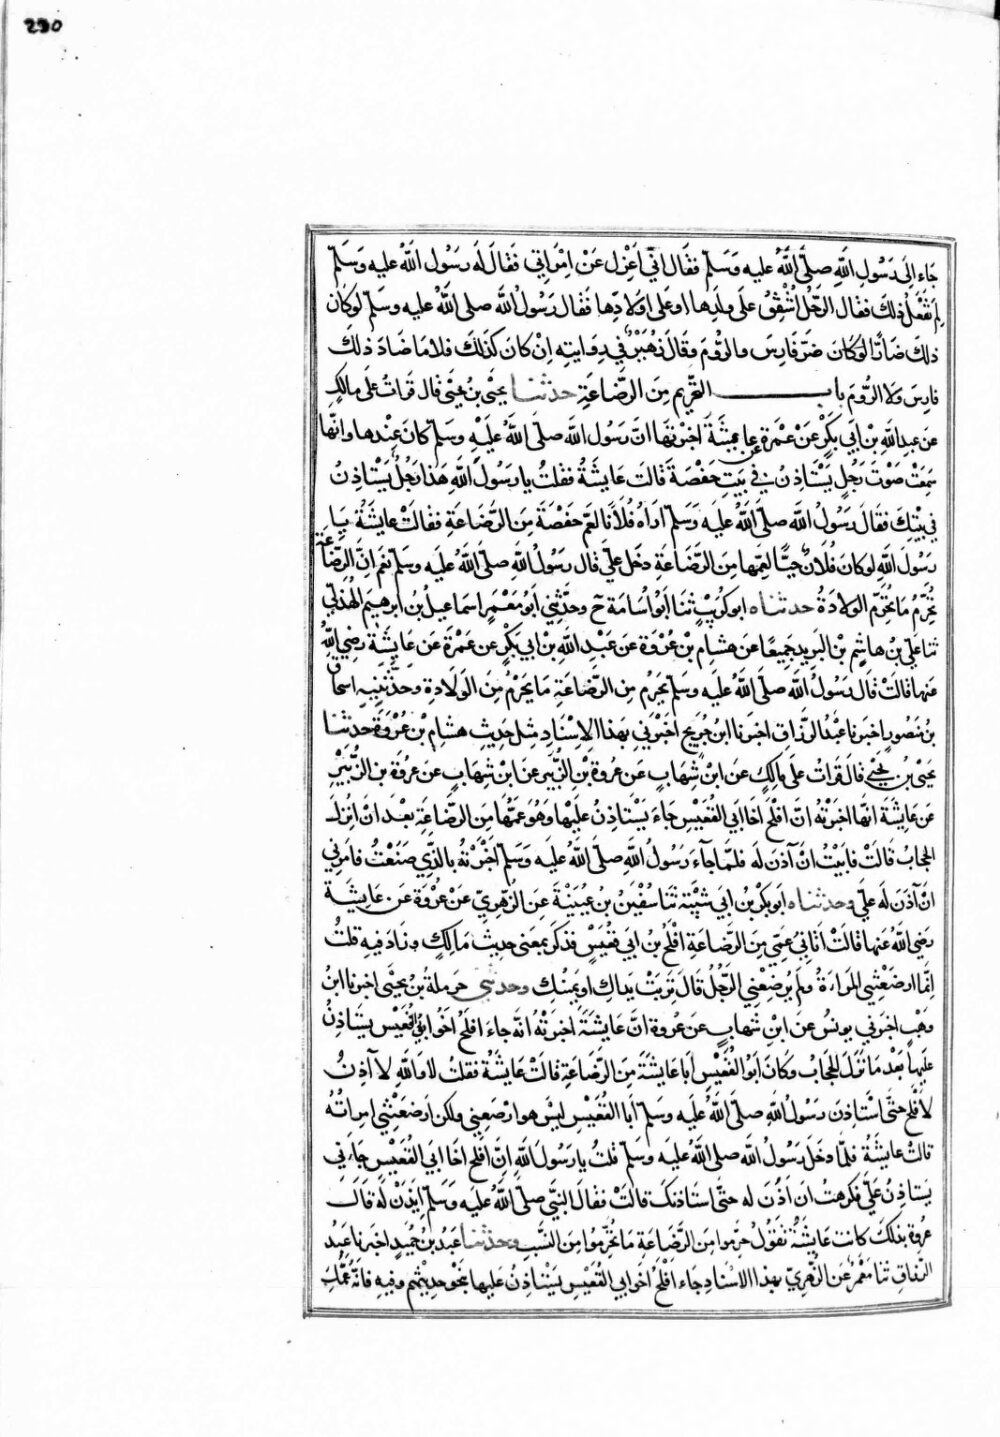 230
جَاءَ اِلَى رَسُولِ اللَّهِ صلَّى اللَّهُ عليه وَسَلَّم فقَال انّي اَعْزِل عَنْ اِمْرَاتِي فَقَالَ لَه رَسُول اللَّهُ عليه وَسَلَّمْ
لِمَ تَفْعَلُ ذلِكَ فقَال الرّجُل اُشْفِقُ عَلَى ولَدِهَا اوعَلَى اولَادِها فقَال رَسُولُ اللَّه صلى اللَّهُ عليه وسَلَّم لوكَانَ
ذلكَ ضَارًّا لوكَانَ ضَرَّ فَارِسَ والرُّومَ وقَالَ زُهَيْرٌ في رِوَايتِهِ اِنْ كَانَ كَذلكَ فلَا مَا ضَارَ ذلكَ
فارِسَ ولَا الرُّومَ باب التَّحْرِيم مِنَ الرضَّاعَةِ حدثنا يحْيَى بن يحْيَى قَال قَرَاتُ عَلَى مَالِكٍ
عَن عبدِ اللَّهِ بْنِ اَبي بَكْرٍ عَنْ عَمْرةَ عن عَايِشَةَ اخبرَتهَا انّ رَسُول اللَّه صلَّى اللَّهُ عليْهِ وسَلَّم كانَ عِنْدها وانَّها
سَمِعَتْ صَوْتَ رَجُلٍ يَسْتَاذِنُ فِي بَيْتِ حَفْصَةَ قَالتْ عَايِشَةُ فقلتُ يا رَسُولَ اللَّهِ هَذا رَجُلٌ يَسْتاذِنُ
في بيْتِكَ فقالَ رَسُولُ اللَّه صلَّى اللَّهُ عليه وَسَلَّم اُراهُ فُلَانًا لعَمِّ حَفْصَةَ مِنَ الرَّضَاعَةِ فقالتْ عايشَةُ يَا
رَسُولَ اللَّهِ لوكانَ فُلَانٌ حيًّا لِعَمِّها مِنَ الرَّضَاعَةِ دخَل عليَّ قال رَسُولُ اللَّهِ صلَّى اللَّهُ عليه وسَلَّم نعَم اِنَّ الرّضَاعَة
تُحَرِّمُ مَا تُحَرِّم الوِلَادَةُ حدثناه ابو كُرَيْبٍ ثنَا اَبُو اُسَامَةَ ح وحَدَّثنِي اَبو مَعْمَرٍ اِسمَاعيلُ بن ابرهيمَ الهُذَلي
ثنا عَلي بْن هاشِمٍ بْن البَرِيدِ جَمِيعًا عَن هِشام بْن عُرْوةَ عَن عَبْدِ اللَّه بْن ابي بَكْرٍ عن عَمْرَةَ عَن عَايِشَة رَضِي اللَّهُ
عَنها قالتْ قَالَ رَسُولُ اللَّه صلَّى اللَّهُ عَليه وسَلَّم يَحْرُم مِن الرّضَاعَةِ مَا يَحْرُمُ مِنَ الوَلَادةِ وحَدَّثنِيهِ اسحاق
بْنُ مَنْصُورٍ اخبرَنا عَبْدُ الرزَّاقِ اخبرَنا ابنُ جُرَيجٍ اخبَرني بهَذا الاِسْنَادِ مِثلَ حَدِيث هشَامِ بْنِ عُرْوَةَ حدثنا
يَحْيَى بن يَحْيَى قالَ قَرَاتُ علَى مَالِكٍ عَن ابْنِ شِهَابٍ عَن عُروةَ بْنِ الزُّبَيرِ عَن ابْن شِهَابٍ عَن عُروَةَ بن الزُّبَيْرِ
عَن عَايِشَةَ انهَّا اخبَرَتْهُ انّ افْلَحَ اخَا اَبي القُعَيْسِ جَاءَ يَسْتَاذِنُ عَليْها وهُوَ عَمُّها مِنَ الرَّضَاعَةِ بعْدَ انْ اُنْزِلَ
الحِجابُ قالَتْ فابَيْتُ اَنْ آذَنَ لَه فلَمّا جَآءَ رَسُولُ اللَّهِ صلّى اللَّهُ عليه وسَلَّم اخْبَرْتُهُ بالذَّي صَنَعْتُ فامَرنِي
اَنْ آذَنَ لَه عليَّ وحدثناه اَبو بَكْر بْن ابي شيْبَة ثنَا سُفْيَنُ بن عُيَيْنَةَ عَنِ الزُّهريِّ عَنْ عُروةَ عَن عايشَةَ
رَضِي اللَّهُ عَنها قالتْ اَتَاني عَمِّي مِنَ الرّضَاعَةِ افْلَحُ بْن ابي قُعَيْسٍ فذكَر بمَعنى حَدِيث مَالِكٍ وزَادَ فيهِ قلتُ
اِنَّمَا ارضَعْتنِي المَراءةُ ولَم يُرضِعْني الرَّجُلُ قَالَ تَرِبَتْ يَدَاكِ او يَمينُكِ وحدثني حَرملَةُ بْنُ يحْيَى اخبرَنا ابنُ
وَهْبٍ اخبَرني يونسُ عَن ابْن شهابٍ عَن عُروةَ انَّ عَايشَةَ اخبَرَتْهُ انَّه جَاءَ افلَحُ اخُو ابي القُعَيْس يسْتَاذِنُ
عَلَيها بَعْدَ مَا نَزَلَ الحِجَابُ وكَانَ اَبُو القُعَيْسِ اَبَا عايشَةَ مِنَ الرَّضَاعَةِ قَالَتْ عَايشَةُ فقلتُ لا واللَّهِ لا آذِنُ
لاَفْلَحَ حتَّى اسْتَاذِنَ رَسُولُ اللَّهِ صلَّى اللَّهُ عَليه وسَلَّم اَبا القُعَيْسِ ليسَ هو ارْضَعَنِي ولكن اَرضَعَتْنِي امرَاتُهُ
قالتْ عايشَةُ فلَمّا دخَلَ رَسُولُ اللَّه صلى اللَّهُ عَليه وسَلَّم قلتُ يا رَسُولَ اللَّهِ اِنَّ افلَحَ اخَا ابي القُعَيْسِ جَاءَني
يَستاذِنُ عَليَّ فكَرهتُ ان آذَنَ له حتَّى استَاذنَكَ قالَتْ فقالَ النبيّ صلَّى اللَّهُ عليه وَسَلَّم اِيذَنِي لَه قالَ
عُروة بذلكَ كانت عَايِشَةُ تقُولُ حرِّموا مِنَ الرَّضَاعَةِ مَا تُحَرِّمُوا مِنَ النَّسَبِ وحدثنا عَبْدُ بْن حُمَيدٍ اخبَرنا عَبدُ
الرزاقِ ثنا مَعْمَرٌ عَن الزُّهريِّ بهذا الاسْنَادِ جَاء افلَحُ اخُو ابي القُعَيْسِ يَسْتاذِنُ عليها بنحْوِ حديثِهم وفيهِ فانَّه عَمُّكِ